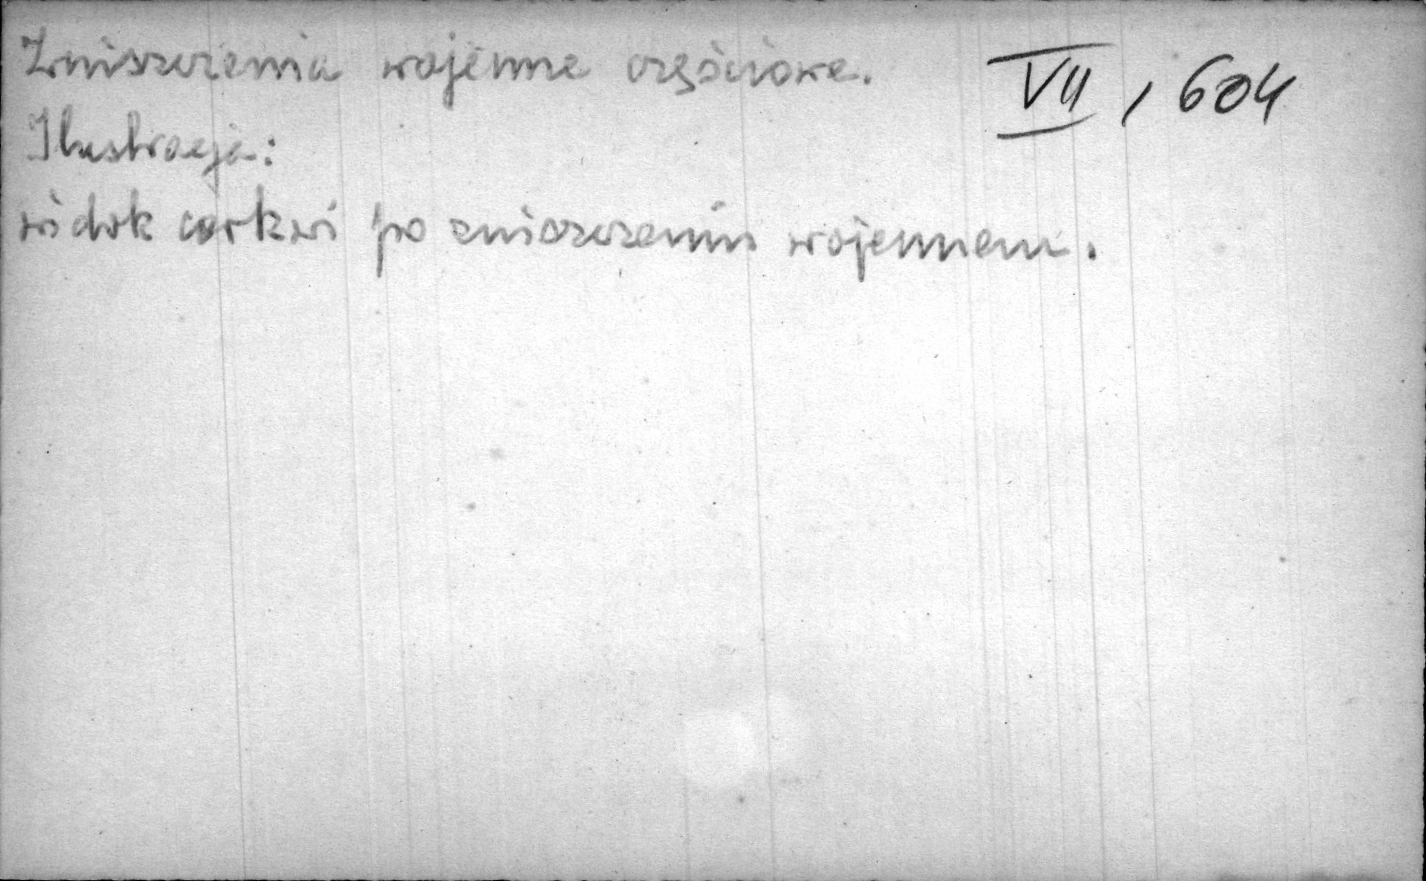 Zniszczenia wojenne częściowe. VII, 604
Ilustracja:
widok cerkwi po zniszczeniu wojennem.